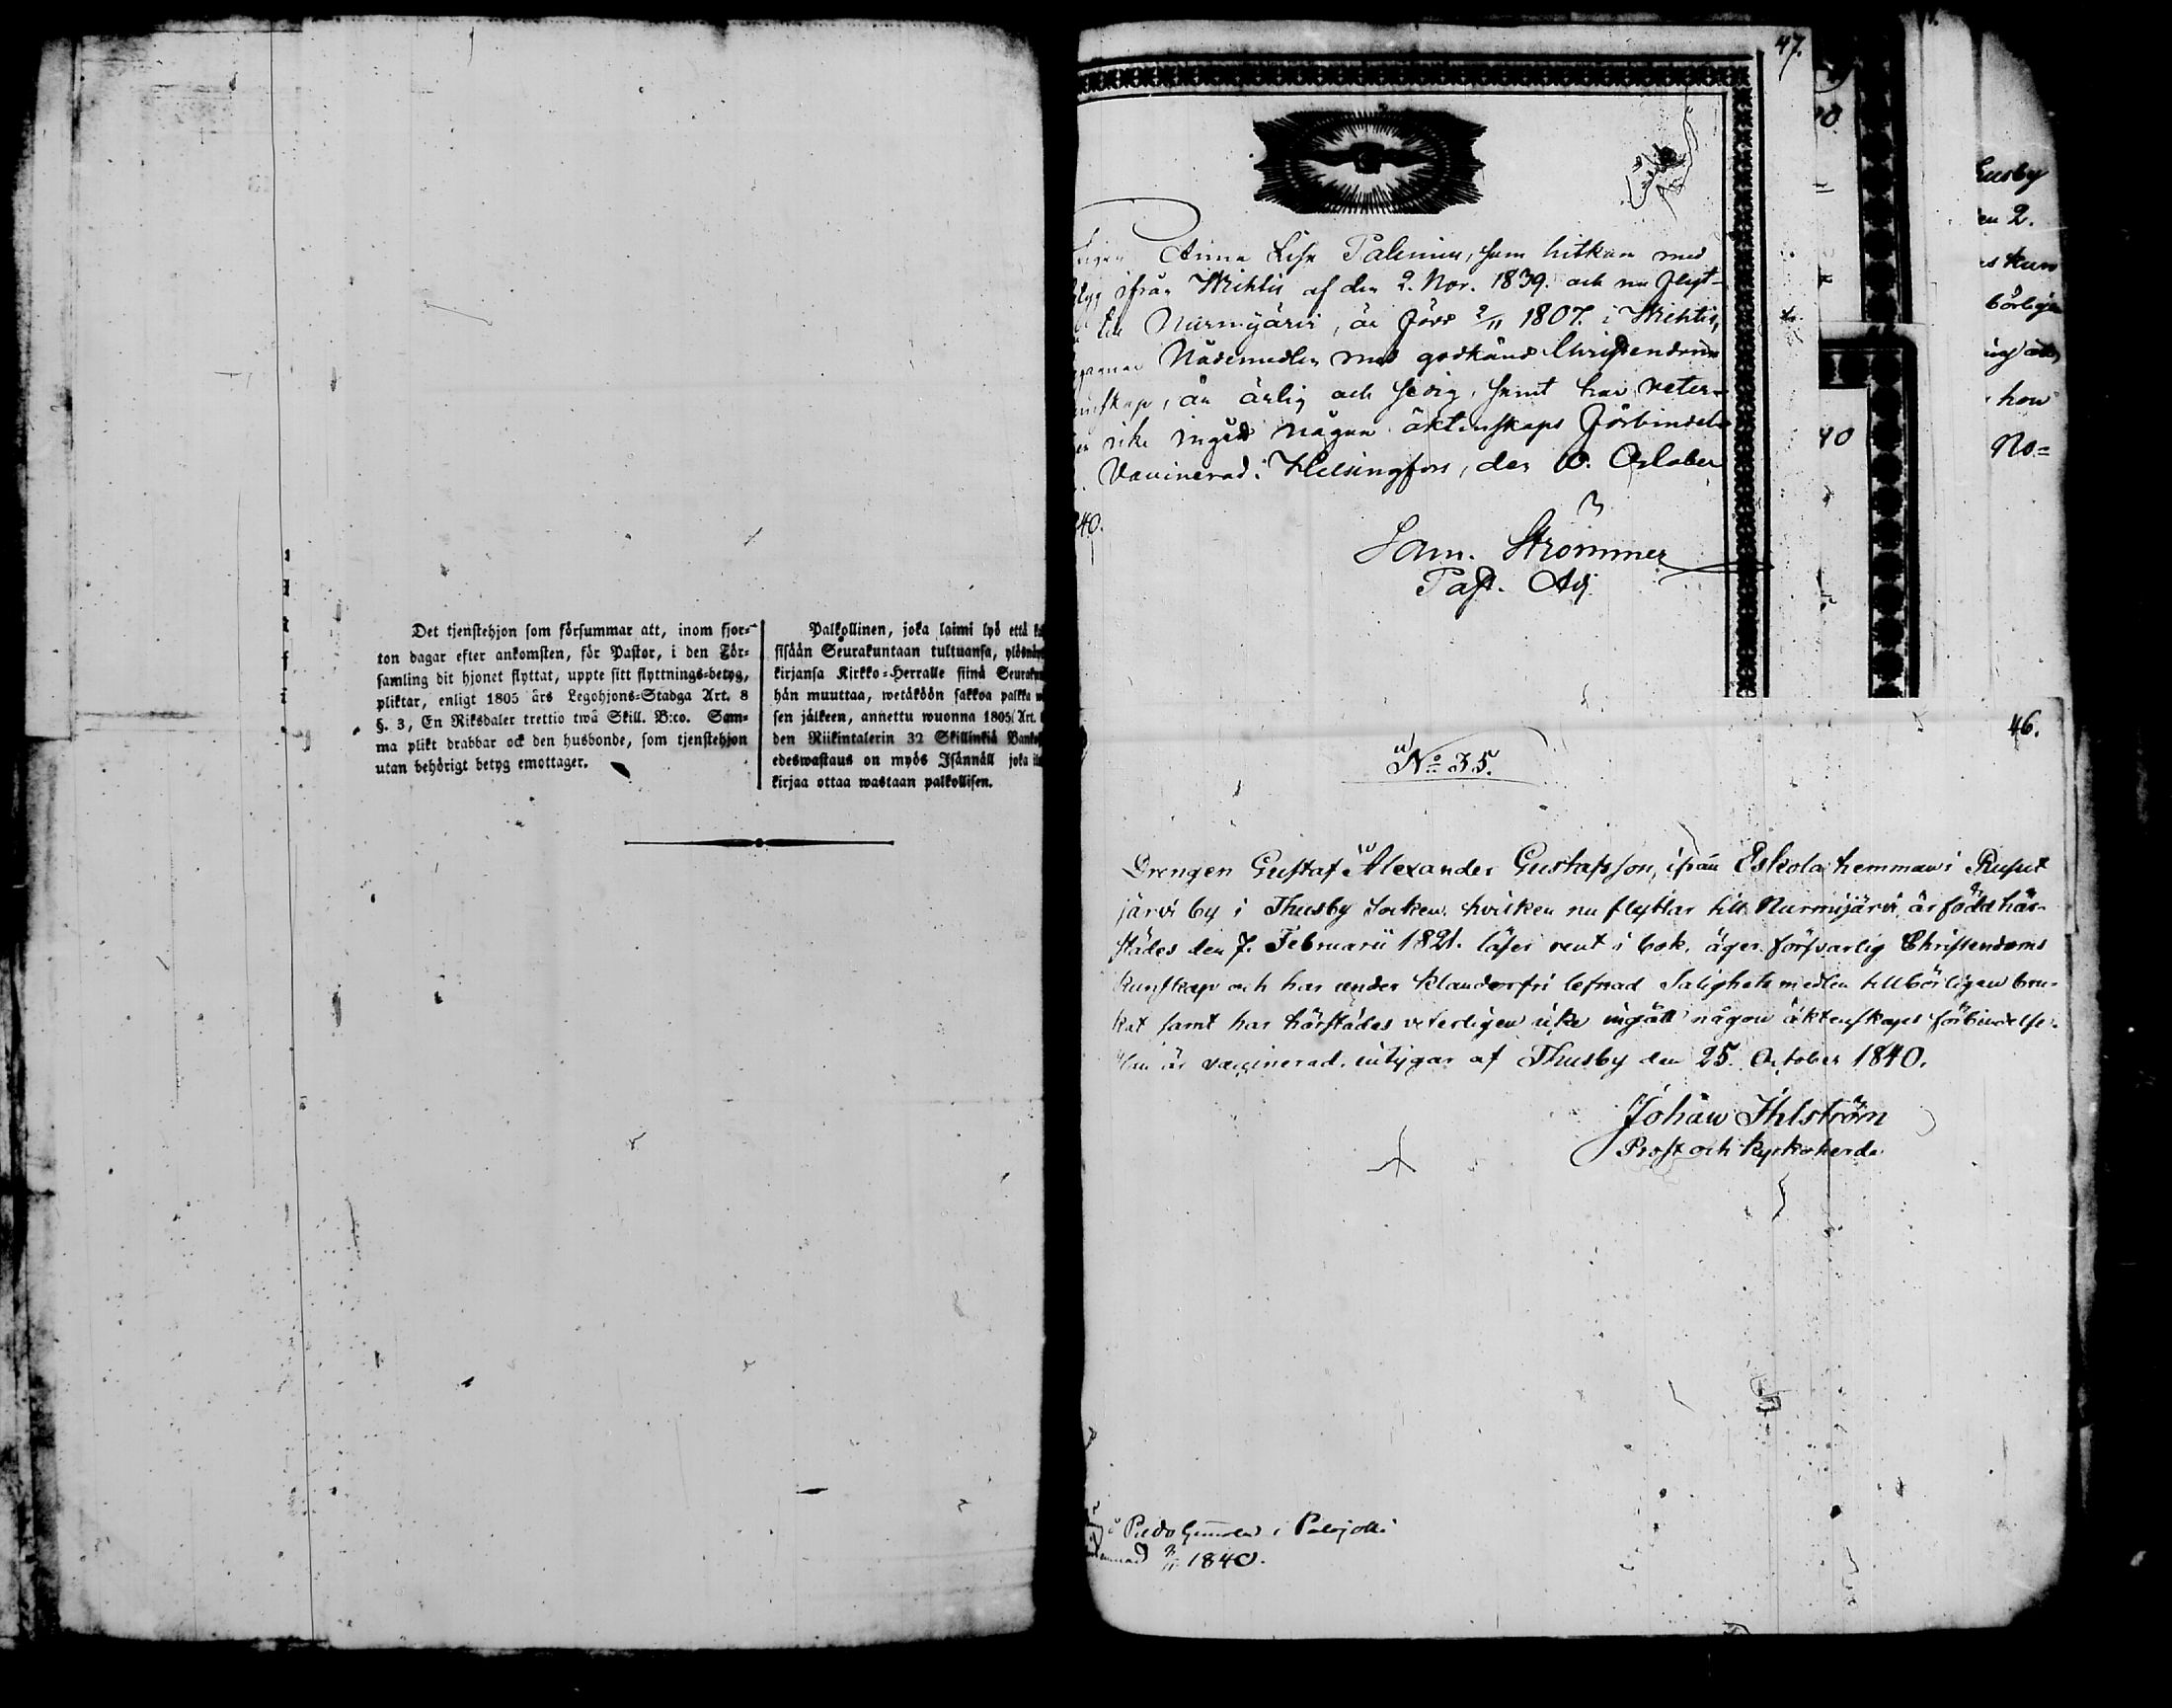 Det tjenstehjon som försummar att, inom fjor-
ton dagar efter ankomsten, för Pastor, i den För-
samling dit hjonet flyttat, uppte sitt flyttnings-betyg,
pliktar, enligt 1805 års Legohjons-Stadga Art. 8
§. 3, En Riksdaler trettio twå Skill. B:co. Sam-
ma plikt drabbar ock den husbonde, som tjenstehjon
utan behörigt betyg emottager.
Palkollinen, joka laimi lyö että
sisään Seurakuntaan tultuansa,
kirjansa Kirkko-Herralle siinä
hän muuttaa, wetäköön sakkoa palkka
sen jälkeen, annettu wuonna 1805 Art.
den Riikintalerin 32 Skillinkiä
edeswastaus on myös Isännäll joka
kirjaa ottaa wastaan palkollisen.
47.
Anna Lisa Palenius, som hitkom med
ifrån Wichtis af den 2. Nov. 1839. och nu flyt-
till Nurmijärvi, är född 2/11 1807. i Wichtis,
Nådemedlen med godkänd Christendoms
är ärlig och sedig, samt har veter-
icke ingått någon äktenskaps förbindelse
Vaccinerad. Helsingfors, den 10. October
40.
Sam. Strömmer
Past. Adj.
46.
No 35.
Drengen Gustaf Alexander Gustafsson, ifrån Eskola hemman i Rusut
järvi by i Thusby Socken, hvilken nu flyttar till Nurmijärvi, är född här-
städes den 7. Februarii 1821. läser rent i bok, äger försvarlig Christendoms
kunskap och har under klanderfri lefnad Salighets medlen tillbörligen bru-
kat samt har härstädes veterligen icke ingått någon äktenskaps förbindelse.
Han är vaccinerad, intygar af Thusby den 25. October 1840.
Johan Ihlström
Prost och Kyrkoherde
i Palojoki
1840.
Husby
en 2.
hon
No=
40